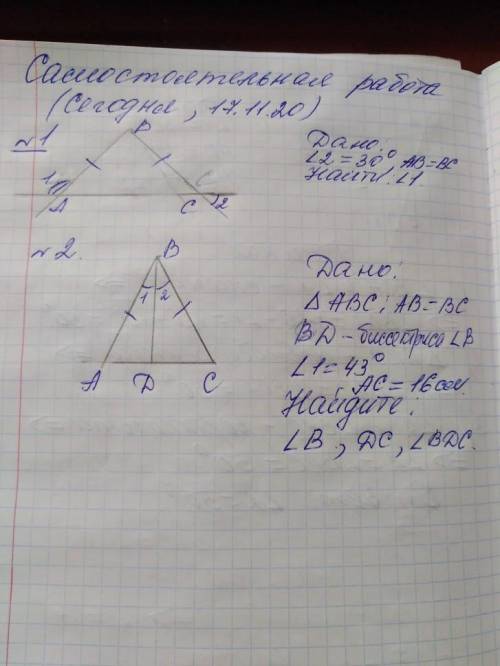 Самостоятельная работа
(Сегодня, 17.11.20)
№1
B
1
A
C
C
2
Дано:
∠2 = 30° AB = BC
Найти: ∠1
№2.
B
1 2
A D C
Дано:
△ABC; AB = BC
BD – биссектриса ∠B
∠1 = 43°
AC = 16 см.
Найдите:
∠B, DC, ∠BDC.